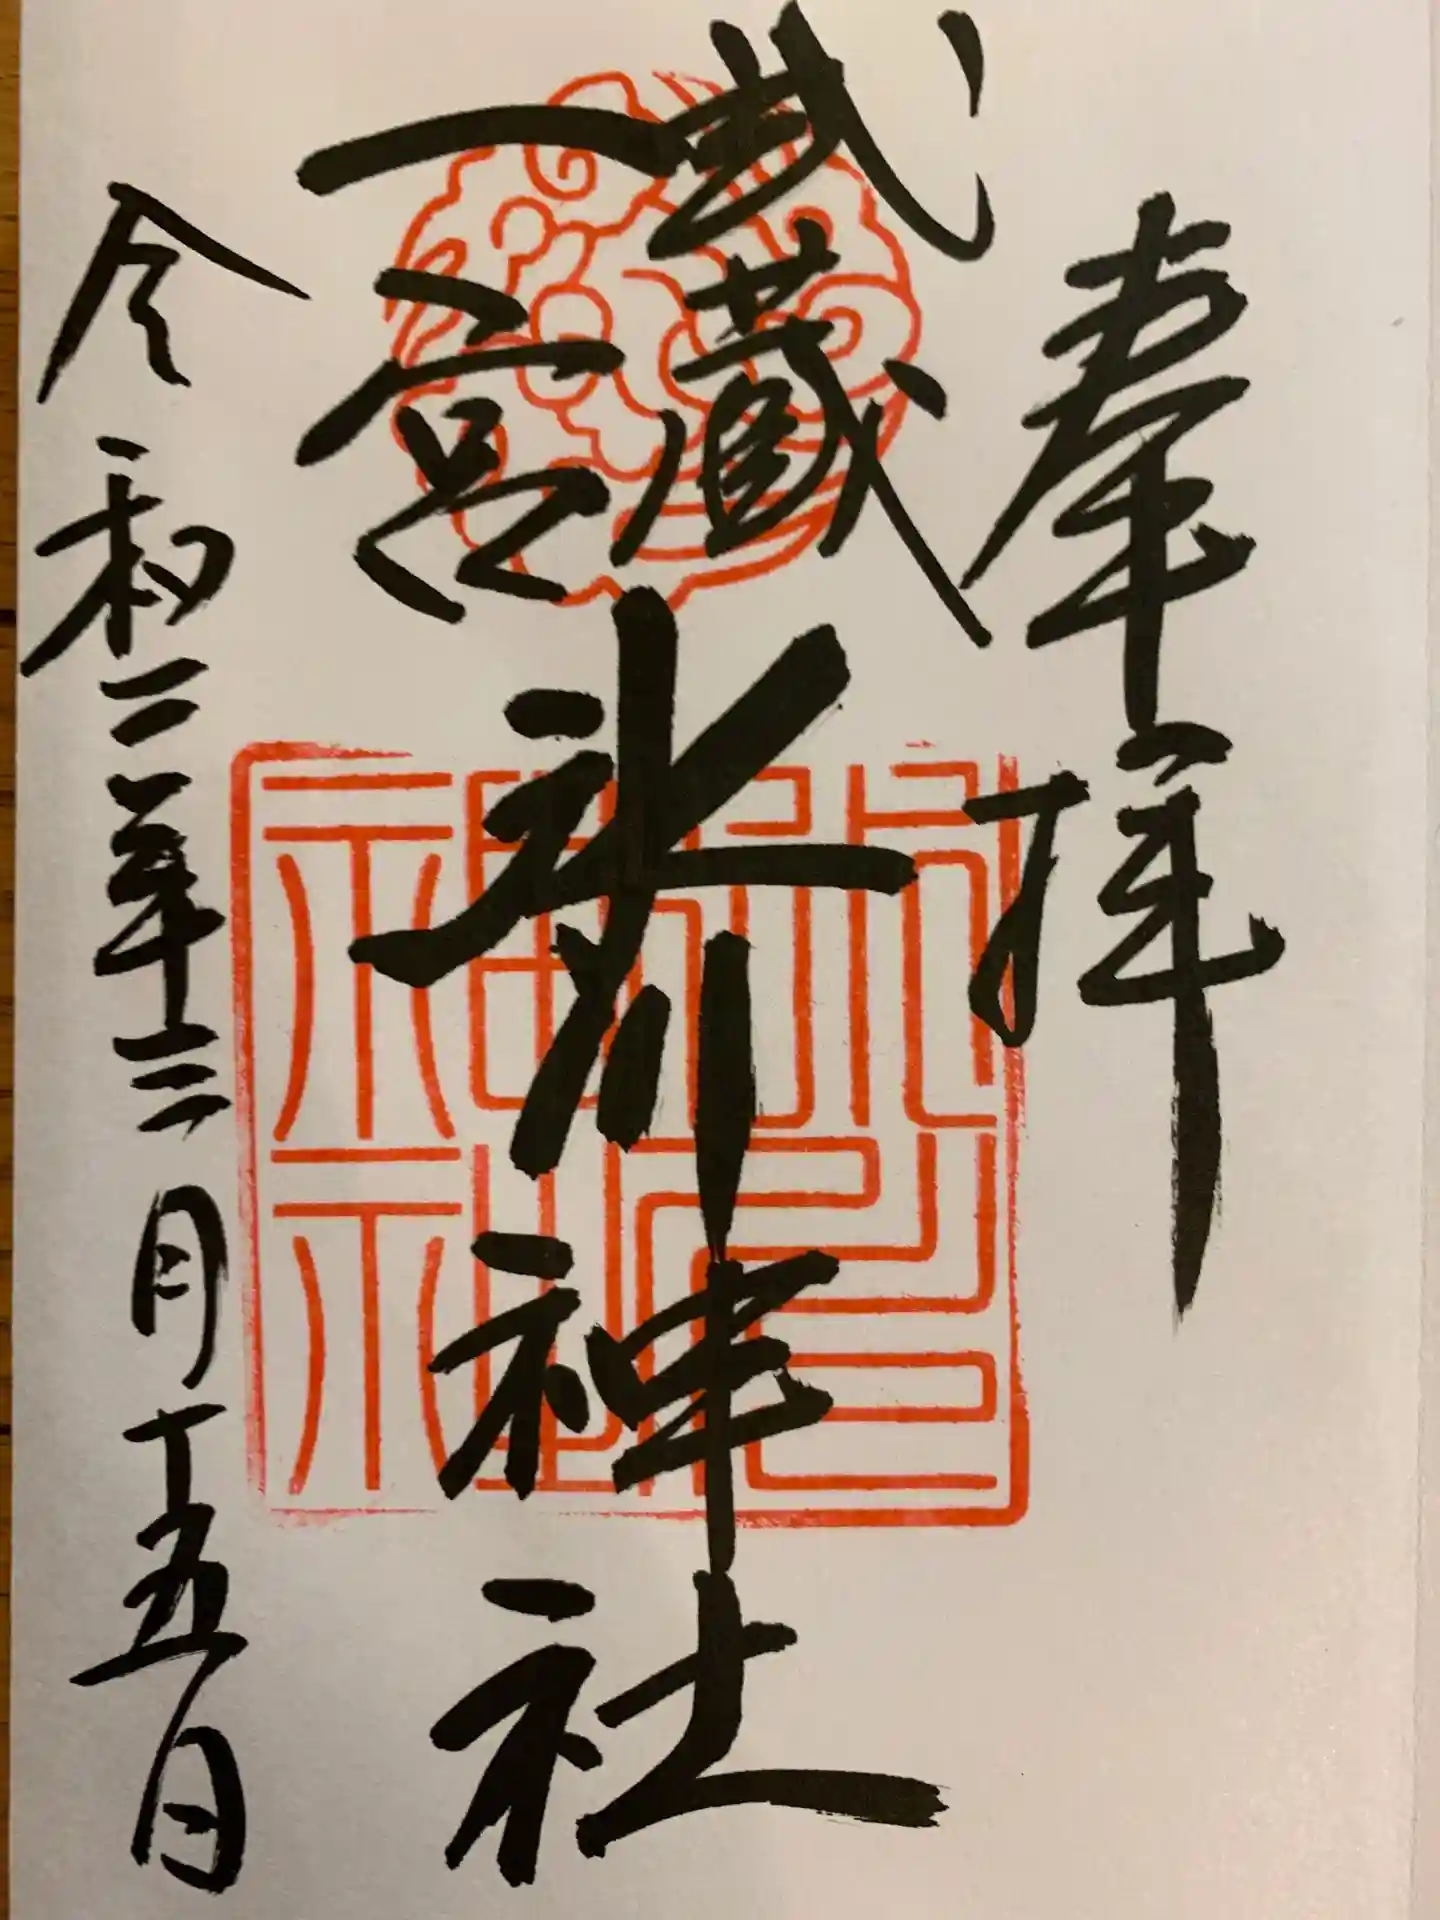 奉拝
武蔵
一宮
氷川神社
令和二年三月十五日
氷川
神社